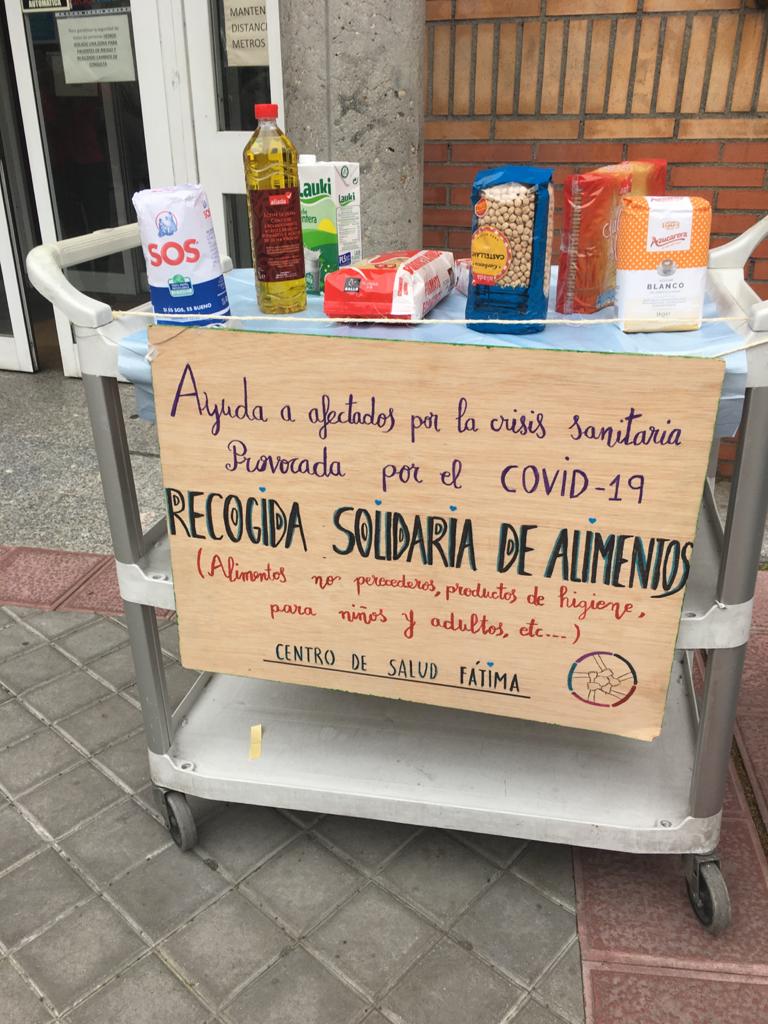 AUTOMÁTICA
MANTEN
DISTANC
METROS
SOS
SI ES SOS, ES BUENO
aliada
Lauki
Lauki
GALLO
CASTELLANO
Garbanzo
Azucarera
BLANCO
Ayuda a afectados por la crisis sanitaria
Provocada por el COVID-19
RECOGIDA SOLIDARIA DE ALIMENTOS
(Alimentos no perecederos, productos de higiene,
para niños y adultos, etc...)
CENTRO DE SALUD FÁTIMA